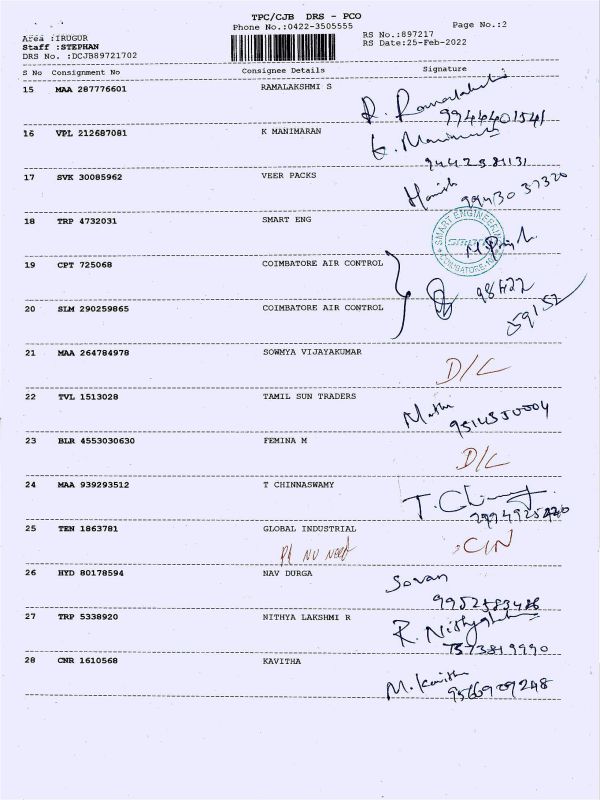 TPC/CJB DRS - PCO
Phone No.:0422-3505555 Page No.:2
Area :IRUGUR RS No.:897217
Staff :STEPHAN RS Date:25-Feb-2022
DRS No. :DCJB89721702
S No Consignment No Consignee Details Signature
15 MAA 287776601 RAMALAKSHMI S R. Ramalakshmi
9944401541
16 VPL 212687081 K MANIMARAN K. Manimaran
9442581131
17 SVK 30085962 VEER PACKS Harish
99430 37320
18 TRP 4732031 SMART ENG SMART ENGINEERING
COIMBATORE
19 CPT 725068 COIMBATORE AIR CONTROL
98422
20 SLM 290259865 COIMBATORE AIR CONTROL
59152
21 MAA 264784978 SOWMYA VIJAYAKUMAR D/L
22 TVL 1513028 TAMIL SUN TRADERS
23 BLR 4553030630 FEMINA M D/L
24 MAA 939293512 T CHINNASWAMY
25 TEN 1863781 GLOBAL INDUSTRIAL
26 HYD 80178594 NAV DURGA Sovan
27 TRP 5338920 NITHYA LAKSHMI R
28 CNR 1610568 KAVITHA M. Kavitha